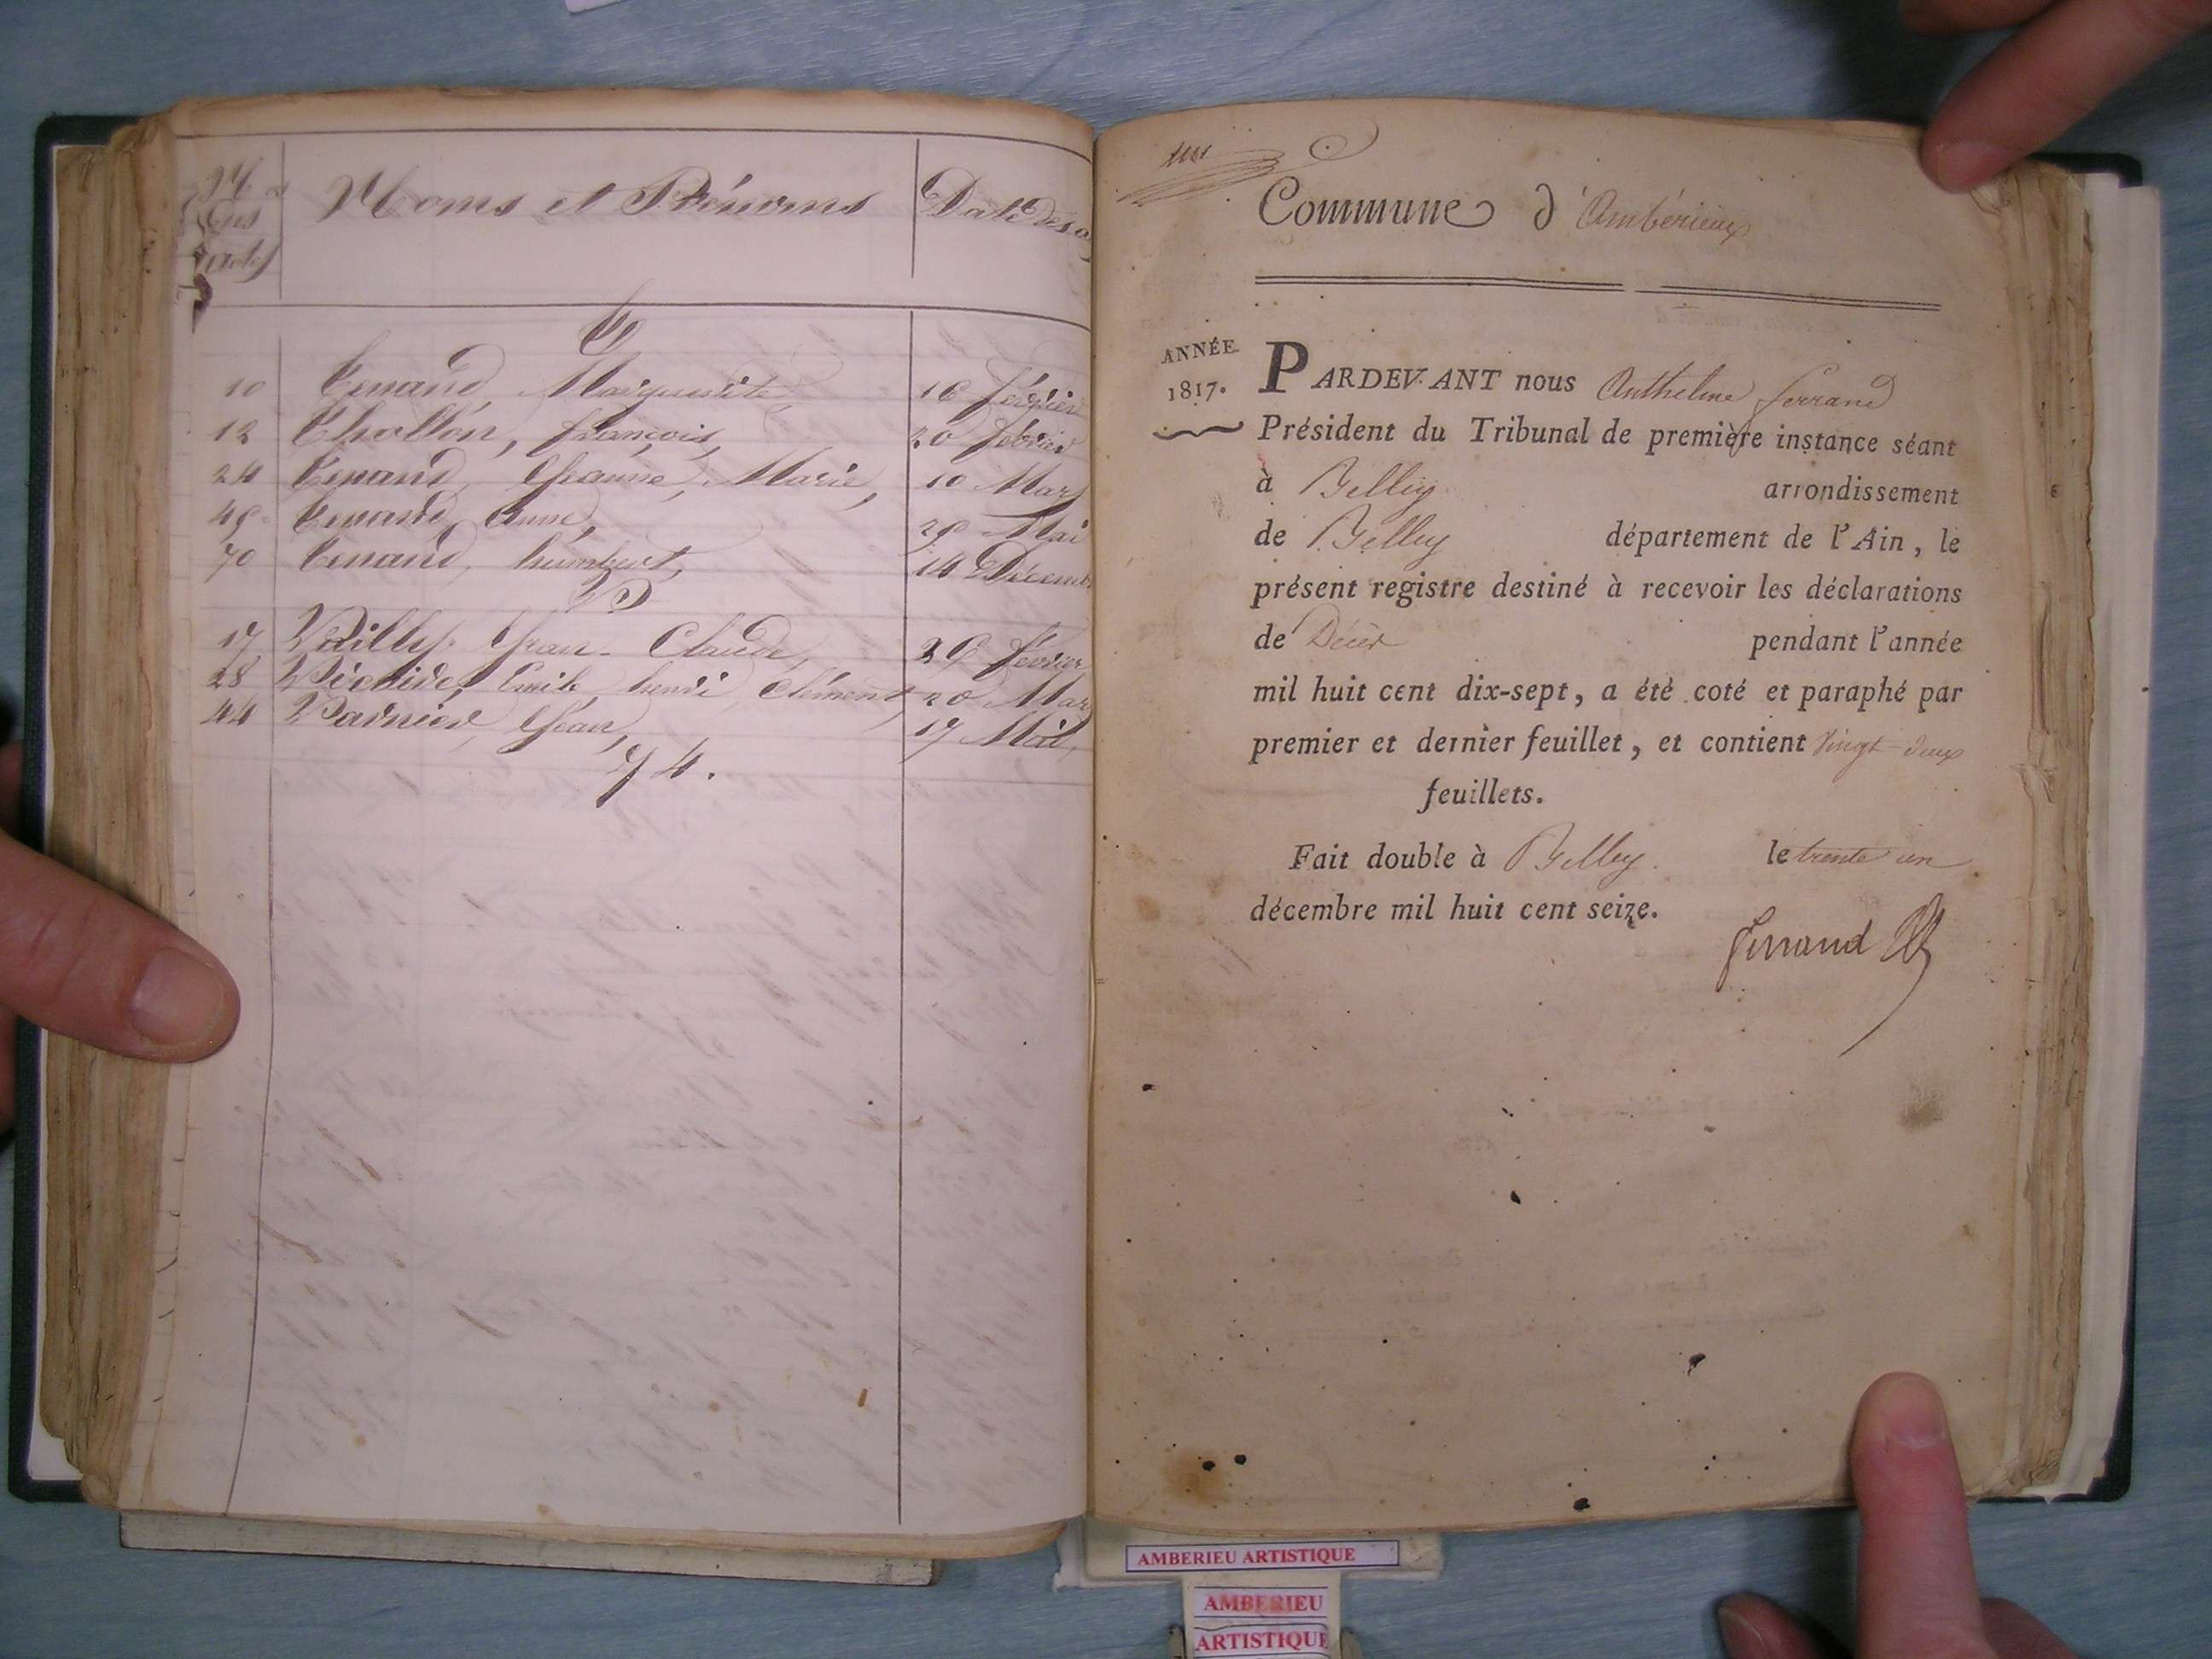 Nos des actes
Noms et Prénoms
Date des a
T
10 Tenand, Marguerite, 16 février
12 Thollon, françois, 20 février
24 Tenand, Jeanne, Marie, 10 Mars
49 Tenand, Anne, 29 Mai
70 Tenand, humbert, 14 Décemb
V
17 Vuilly Jean-Claude, 26 février
28 Emile henri Clément, 20 Mar
44 Varnier, Jean, 17 Mai,
74.
Commune d'Ambérieux
ANNÉE
1817.
PARDEVANT nous Anthelme ferrand
Président du Tribunal de première instance séant
à Belley arrondissement
de Belley département de l'Ain, le
présent registre destiné à recevoir les déclarations
de Décès pendant l'année
mil huit cent dix-sept, a été coté et paraphé par
premier et dernier feuillet, et contient vingt deux
feuillets.
Fait double à Belley. le trente un
décembre mil huit cent seize.
ferrand
AMBERIEU ARTISTIQUE
AMBERIEU
ARTISTIQUE